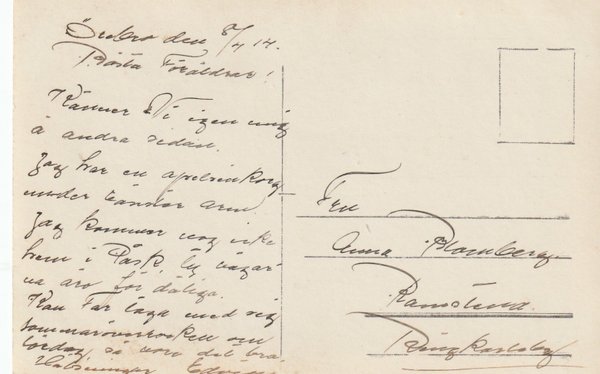 Örebro den 8/4 14.
Bästa Föräldrar!
Känner Ni igen mig
å andra sidan.
Jag har en apelsinkorg
under vänster arm
Jag kommer nog icke
hem i Påsk, ty vägar
na äro för dåliga.
Kan Far taga med sig
sommaröverrocken om
lördag, så vore det bra
Hälsningar
Fru
Anna Blomberg
Ramslund
Ringkarleby